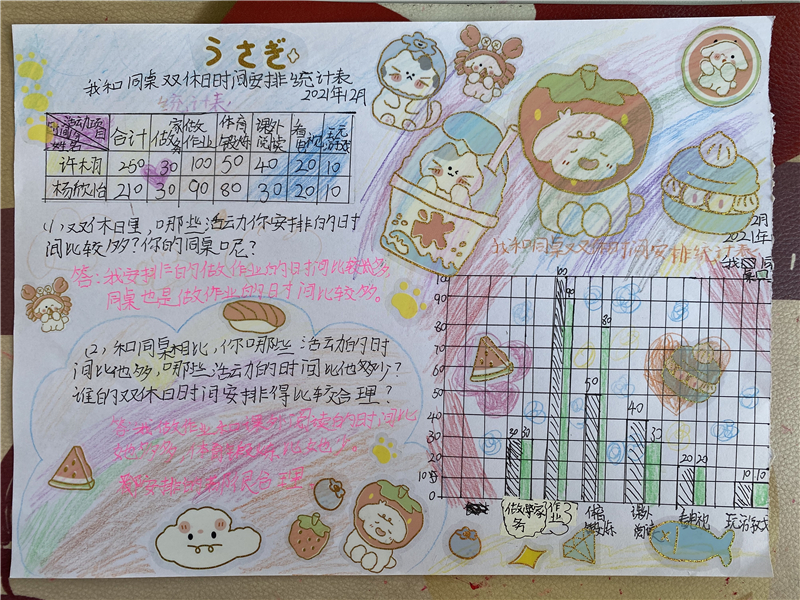 うさぎ
我和同桌双休日时间安排统计表
2021年12月
统计表
活动项目
时间
姓名
合计 做家务 做作业 体育锻炼 课外阅读 看电视 玩游戏
许栩 250 30 100 50 40 20 10
杨欣怡 210 30 90 80 30 20 10
(1)双休日里,哪些活动你安排的时
间比较多?你的同桌呢?
答:我安排的做作业的时间比较多
同桌也是做作业的时间比较多。
(2)和同桌相比,你哪些活动的时
间比他多,哪些活动的时间比他少?
谁的双休日时间安排得比较合理?
答:我做作业和课外阅读的时间比
她多,体育锻炼比她少。
合理。
我和同桌双休时间安排统计表
2月
2021年
我 同桌
100
90
80
70
60
50
40
30
20
10
0
30 30 100 90 50 80 40 30 20 20 10 10
做家务 作业 体育锻炼 课外阅读 看电视 玩游戏